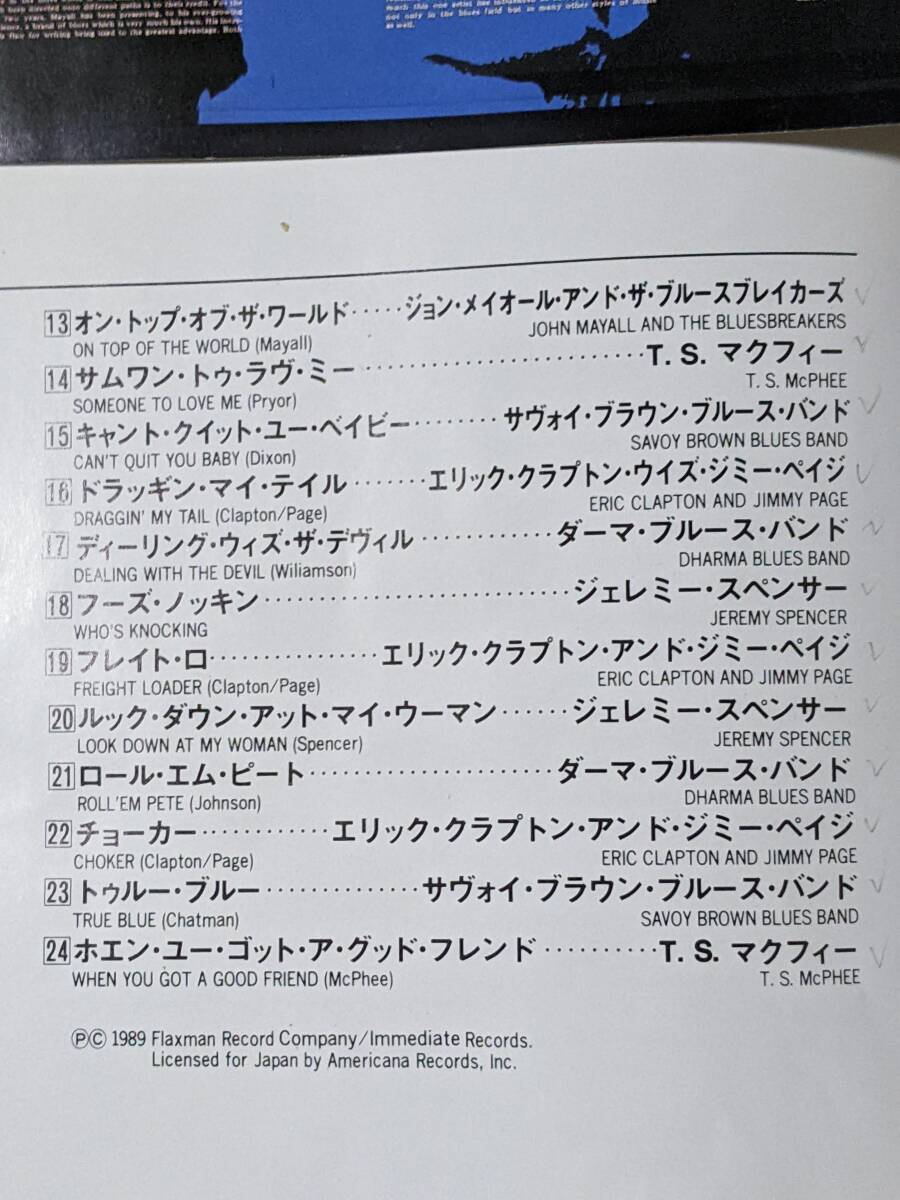 two years. Mayall has been presenting, to his ever-growing
a flair for writing being used to the greatest advantage. Both
much this one artist has influenced
not only in the blues field but in many other styles of music
as well.
13 オン・トップ・オブ・ザ・ワールド・・・・・ジョン・メイオール・アンド・ザ・ブルースブレイカーズ
ON TOP OF THE WORLD (Mayall) JOHN MAYALL AND THE BLUESBREAKERS
14 サムワン・トゥ・ラヴ・ミー・・・・・・・・・・・・・・・・・・・・・・・・・T. S. マクフィー
SOMEONE TO LOVE ME (Pryor) T. S. McPHEE
15 キャント・クイット・ユー・ベイビー・・・・・・・・サヴォイ・ブラウン・ブルース・バンド
CAN'T QUIT YOU BABY (Dixon) SAVOY BROWN BLUES BAND
16 ドラッギン・マイ・テイル・・・・・・・エリック・クラプトン・ウイズ・ジミー・ペイジ
DRAGGIN' MY TAIL (Clapton/Page) ERIC CLAPTON AND JIMMY PAGE
17 ディーリング・ウィズ・ザ・デヴィル・・・・・・・・・・・・ダーマ・ブルース・バンド
DEALING WITH THE DEVIL (Wiliamson) DHARMA BLUES BAND
18 フーズ・ノッキン・・・・・・・・・・・・・・・・・・・・・・・・・・・・ジェレミー・スペンサー
WHO'S KNOCKING JEREMY SPENCER
19 フレイト・ロ・・・・・・・・・・・・・・・エリック・クラプトン・アンド・ジミー・ペイジ
FREIGHT LOADER (Clapton/Page) ERIC CLAPTON AND JIMMY PAGE
20 ルック・ダウン・アット・マイ・ウーマン・・・・・・ジェレミー・スペンサー
LOOK DOWN AT MY WOMAN (Spencer) JEREMY SPENCER
21 ロール・エム・ピート・・・・・・・・・・・・・・・・・・・・・・ダーマ・ブルース・バンド
ROLL'EM PETE (Johnson) DHARMA BLUES BAND
22 チョーカー・・・・・・・・・・・・エリック・クラプトン・アンド・ジミー・ペイジ
CHOKER (Clapton/Page) ERIC CLAPTON AND JIMMY PAGE
23 トゥルー・ブルー・・・・・・・・・・・・・・サヴォイ・ブラウン・ブルース・バンド
TRUE BLUE (Chatman) SAVOY BROWN BLUES BAND
24 ホエン・ユー・ゴット・ア・グッド・フレンド・・・・・・・・・・T. S. マクフィー
WHEN YOU GOT A GOOD FRIEND (McPhee) T. S. McPHEE
ⓅⒸ 1989 Flaxman Record Company/Immediate Records.
Licensed for Japan by Americana Records, Inc.